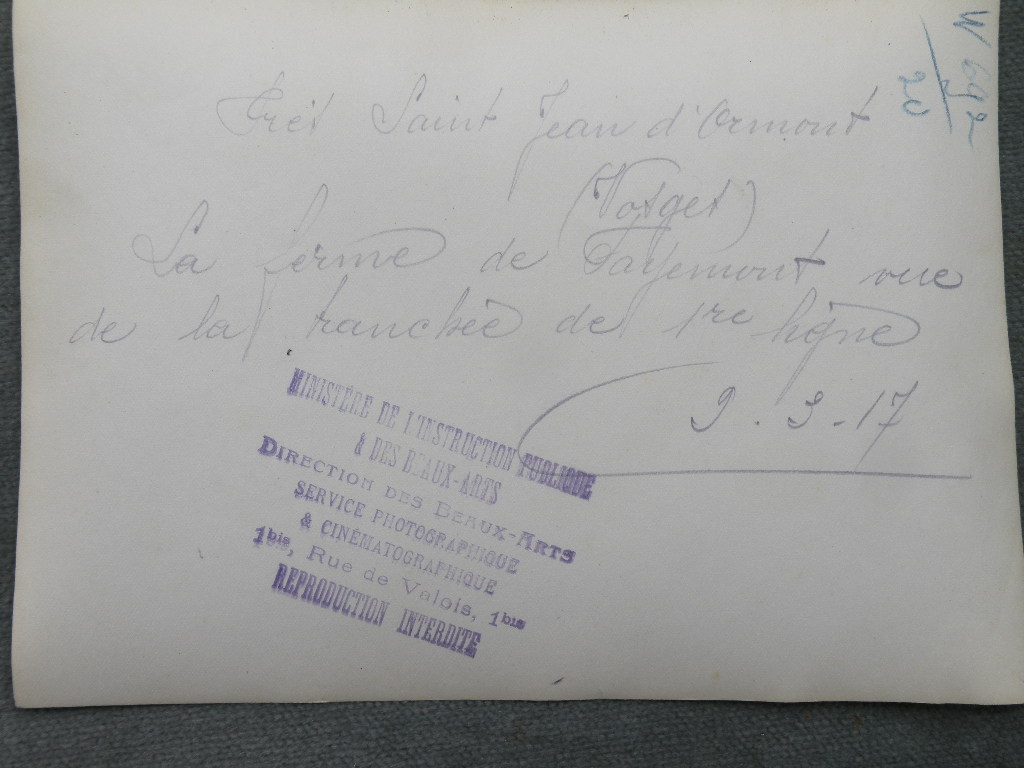 Près Saint Jean d'Ormont
(Vosges)
La ferme de Fayemont vue
de la tranchée de 1re ligne
9.3.17
W 692
20
MINISTÈRE DE L'INSTRUCTION PUBLIQUE
& DES BEAUX-ARTS
DIRECTION DES BEAUX-ARTS
SERVICE PHOTOGRAPHIQUE
& CINÉMATOGRAPHIQUE
1bis, Rue de Valois, 1bis
REPRODUCTION INTERDITE